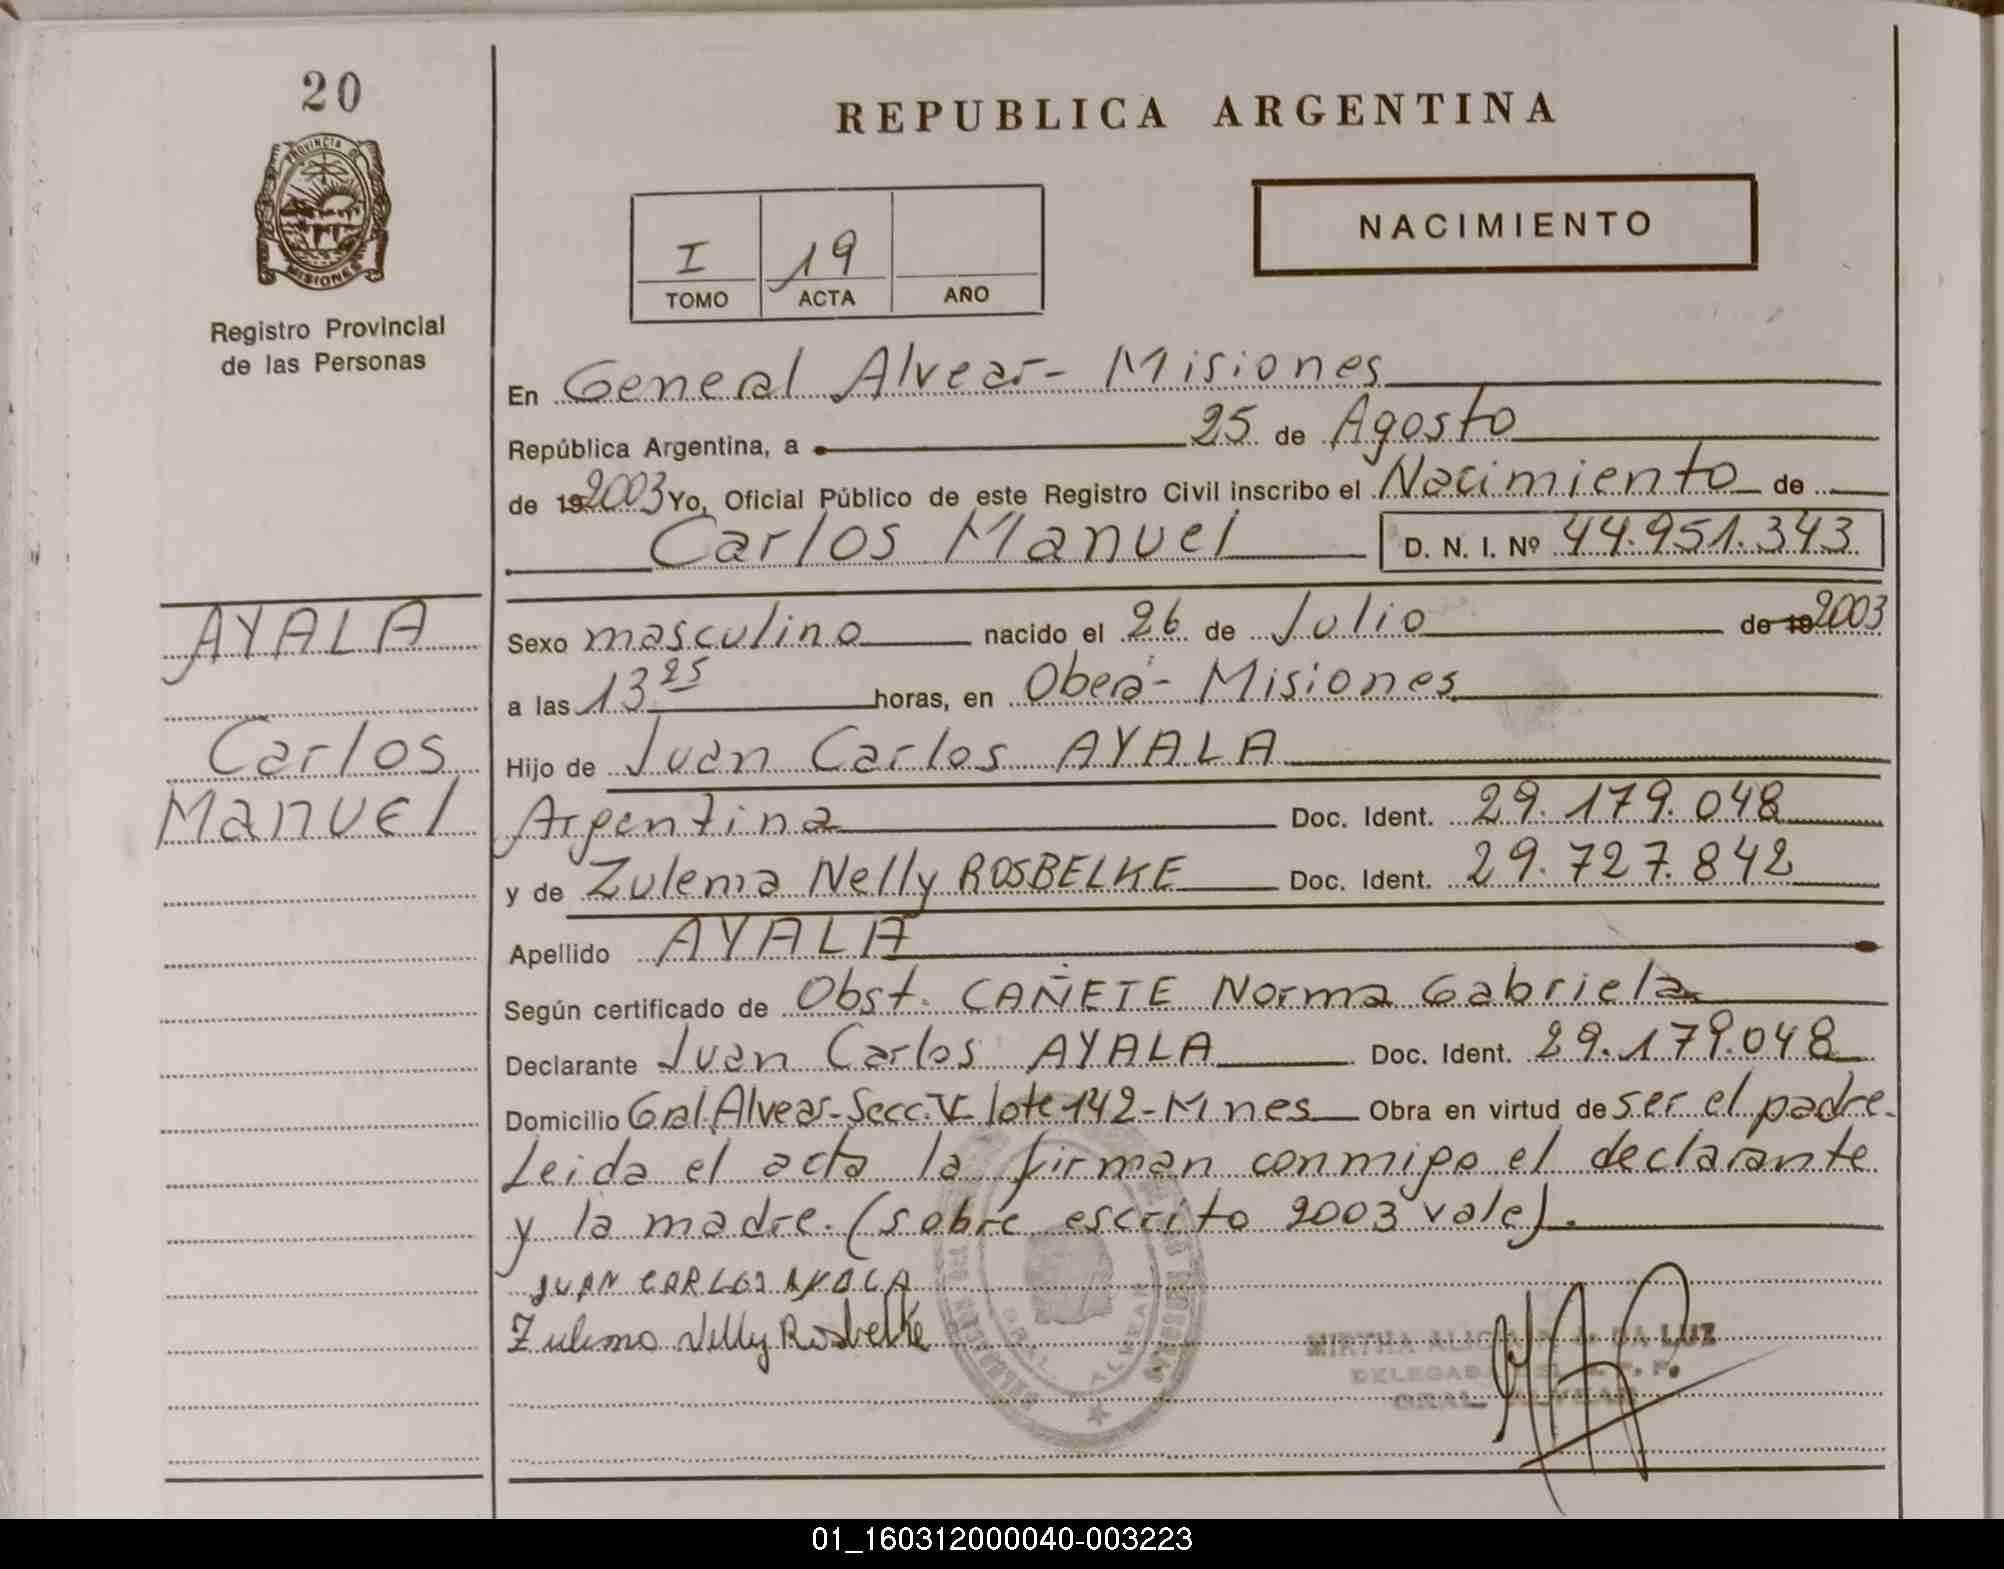 20
PROVINCIA DE
MISIONES
Registro Provincial
de las Personas
REPUBLICA ARGENTINA
I 19
TOMO ACTA AÑO
NACIMIENTO
En General Alvear - Misiones
República Argentina, a 25 de Agosto
de 192003 Yo, Oficial Público de este Registro Civil inscribo el Nacimiento de
Carlos Manuel D. N. I. Nº 44.951.343
AYALA
Carlos
Manuel
Sexo masculino nacido el 26 de Julio de 19 2003
a las 13 25 horas, en Oberá - Misiones
Hijo de Juan Carlos AYALA
Argentina Doc. Ident. 29.179.048
y de Zulema Nelly ROSBELKE Doc. Ident. 29.727.842
Apellido AYALA
Según certificado de Obst. CAÑETE Norma Gabriela
Declarante Juan Carlos AYALA Doc. Ident. 29.179.048
Domicilio Gral. Alvear - Secc. V lote 142 - Mnes Obra en virtud de ser el padre.
Leida el acta la firman conmigo el declarante
y la madre. (sobre escrito 2003 vale).
JUAN CARLOS AYALA
Zulema Nelly Rosbelke
GRAL. ALVEAR
MIRTHA ALICIA DA LUZ
GRAL. ALVEAR
01_160312000040-003223